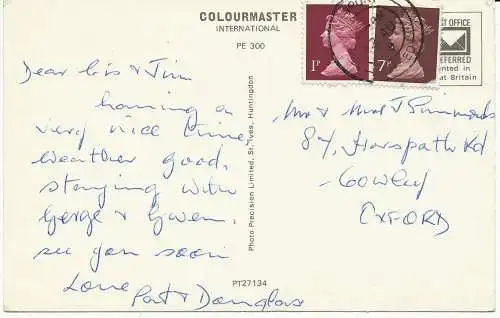 COLOURMASTER
INTERNATIONAL
PE 300
Dear Cis & Jim
having a
very nice time
weather good,
staying with
George & Gwen,
see you soon
Love Pat & Douglas
Photo Precision Limited, St. Ives, Huntingdon
PT27134
1P
7P
ST OFFICE
EFERRED
ented in
at Britain
Mr & Mrs J Simmonds
87, Horspath Rd
Cowley
OXFORD